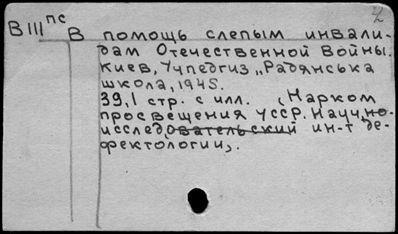 2
В III пс В помощь слепым инвали-
дам Отечественной Войны.
Киев, Учпедгиз „Радянська
школа, 1945.
39,1 стр. с илл. (Нарком
просвещения УССР. Науч. но-
исследовательский ин-т де-
фектологии).